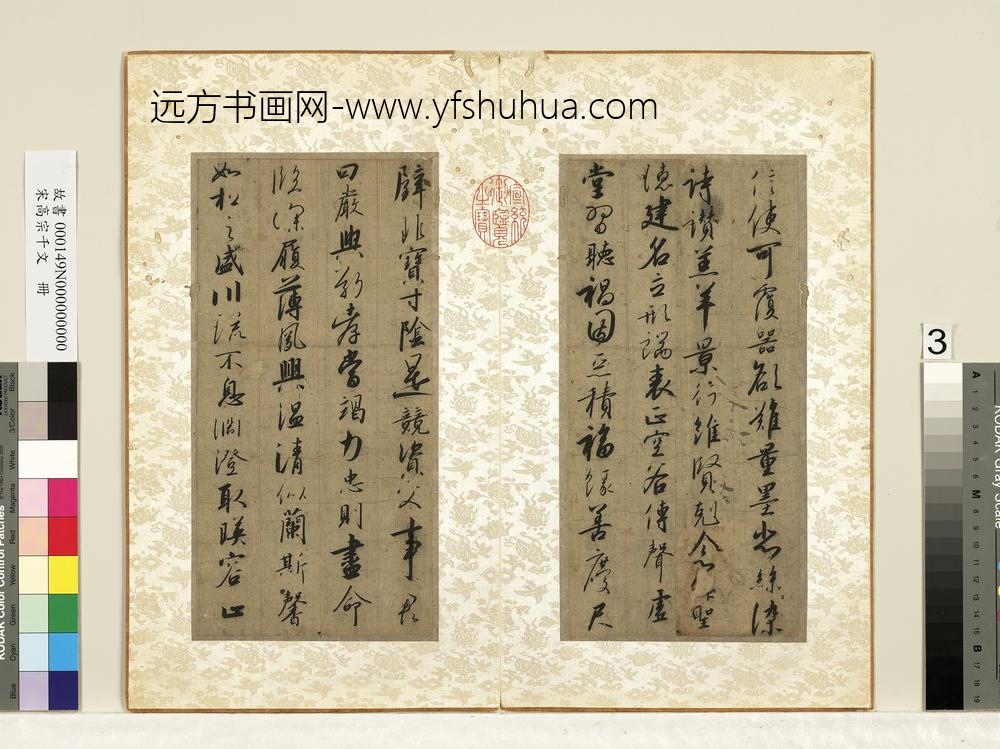 远方书画网-www.yfshuhua.com
信使可覆器欲難量墨悲絲染
詩讃羔羊景行維賢剋念作聖
德建名立形端表正空谷傳聲虛
堂習聽禍因惡積福緣善慶尺
璧非寶寸陰是競資父事君
曰嚴與敬孝當竭力忠則盡命
臨深履薄夙興溫清似蘭斯馨
如松之盛川流不息淵澄取暎容止
宣統御覽之寶
故書000149N000000000
宋高宗千文 冊
3
KODAK Color Control Patches
Blue
Cyan
Green
Yellow
Red
Magenta
White
3/Color
Black
KODAK Gray Scale
A 1 2 3 4 5 6 M 8 9 10 11 12 13 14 15 B 17 18 19